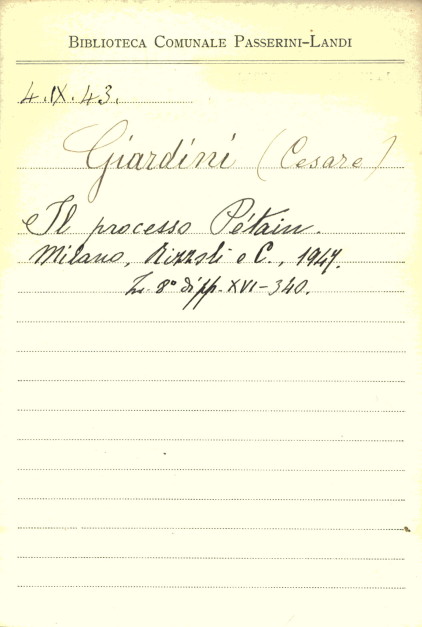 BIBLIOTECA COMUNALE PASSERINI-LANDI
4.IX.43.
Giardini (Cesare)
Il processo Pétain.
Milano, Rizzoli e C., 1947.
In 8° di pp. XVI-340.